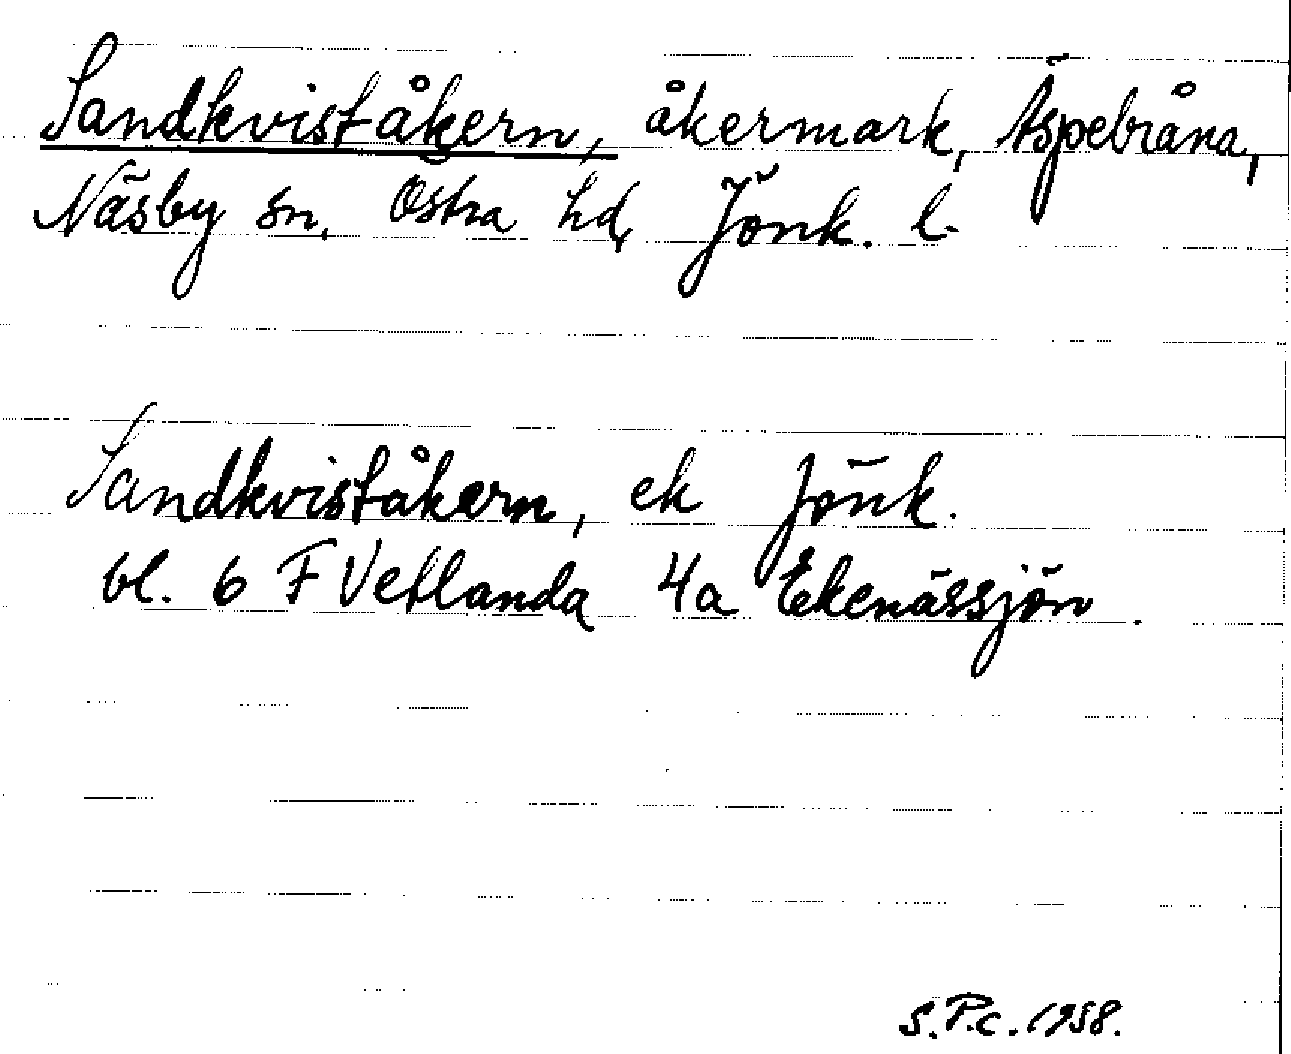 Sandkviståkern, åkermark, Äspebråna,
Näsby sn, Östra hd, Jönk. l.
Sandkviståkern, ek Jönk.
bl. 6 F Vetlanda 4a Ekenässjön.
S.P.C. 1958.